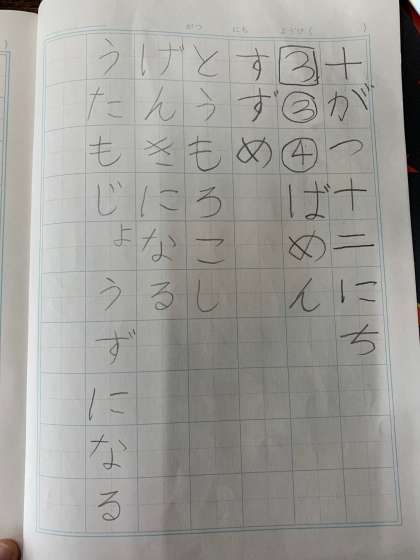 がつ　にち　ようび（　　　）
十がつ十二にち
3③④ばめん
すずめ
とうもろこし
げんきになる
うたもじょうずになる